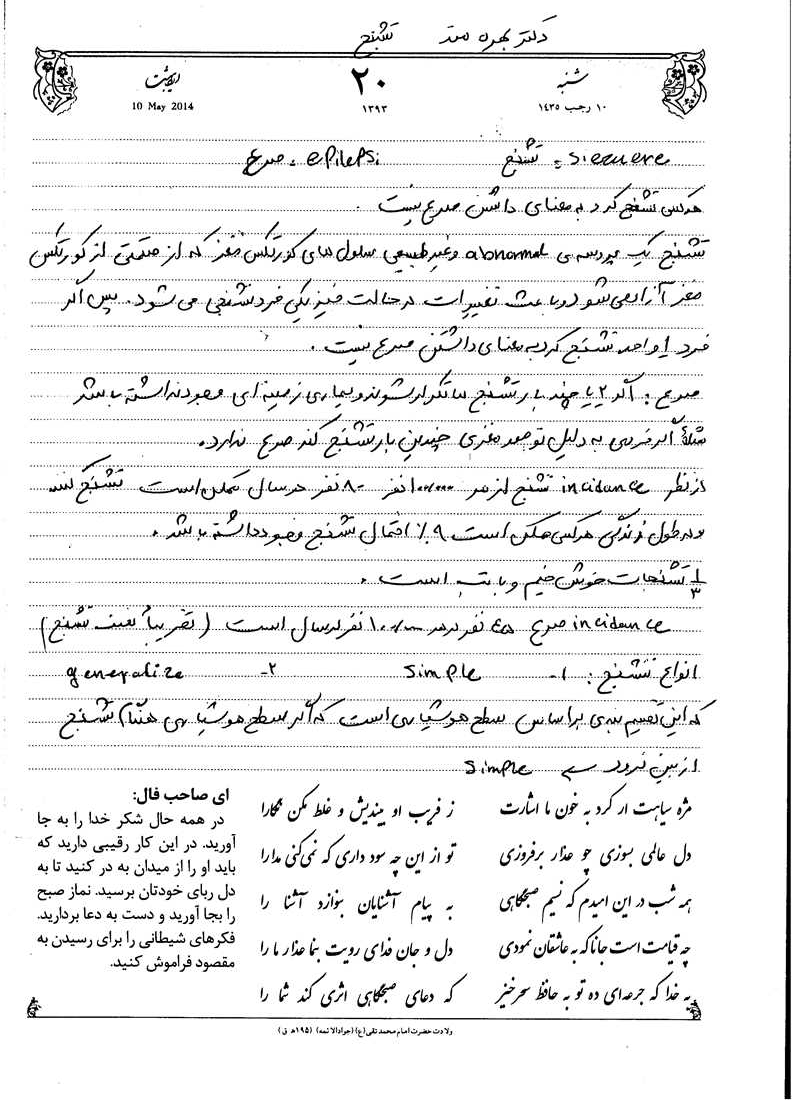 دکتر بهره مند تشنج
شنبه ۲۰ اردیبهشت
۱۰ رجب ۱۴۳۵ ۱۳۹۳ 10 May 2014
siezuere = تشنج epilepsi = صرع
هرکس تشنج کرد به معنای داشتن صرع نیست .
تشنج یک پروسه ی abnormal و غیر طبیعی سلول های کورتکس مغز که از قسمتی از کورتکس
مغز آزاد می شود و باعث تغییرات در حالت فیزیکی فرد تشنجی می شود. پس اگر
فرد یکبار تشنج کرد به معنای داشتن صرع نیست .
صرع : اگر ۲ یا چند بار تشنج ها تکرار شوند و بیماری زمینه ای وجود نداشته باشد
مثلاً اگر فردی به دلیل تومور مغزی چندین بار تشنج کند صرع ندارد.
از نظر incidance تشنج از هر ۱۰۰/۰۰۰ نفر ۸۰ نفر در سال ممکن است تشنج کنند
و در طول زندگی هرکس ممکن است ۹٪ احتمال تشنج وجود داشته باشد .
۱/۳ تشنجات خوش خیم و با تب است .
incidance صرع ۴۵ نفر در هر ۱۰۰/۰۰۰ نفر در سال است (تقریباً نصف تشنج)
انواع تشنج : ۱- simple ۲- generalize
که این تقسیم بندی بر اساس سطح هوشیاری است که اگر سطح هوشیاری هنگام تشنج
از بین نرود ← simple
مژه سیاهت ار کرد به خون ما اشارت ز فریب او بیندیش و غلط مکن نگارا
دل عالمی بسوزی چو عذار برفروزی تو از این چه سود داری که نمی‌کنی مدارا
همه شب در این امیدم که نسیم صبحگاهی به پیام آشنایان بنوازد آشنا را
چه قیامت است جانا که به عاشقان نمودی دل و جان فدای رویت بنما عذار ما را
به خدا که جرعه‌ای ده تو به حافظ سحرخیز که دعای صبحگاهی اثری کند شما را
ای صاحب فال:
در همه حال شکر خدا را به جا
آورید. در این کار رقیبی دارید که
باید او را از میدان به در کنید تا به
دل ربای خودتان برسید. نماز صبح
را بجا آورید و دست به دعا بردارید.
فکرهای شیطانی را برای رسیدن به
مقصود فراموش کنید.
ولادت حضرت امام محمد تقی (ع) (جوادالائمه) (۱۹۵ه ق)